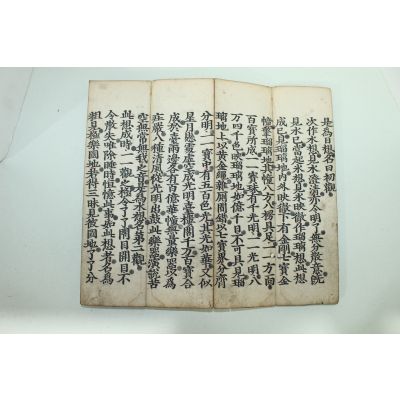 是為日想名曰初觀
次作水想見水澄清亦令明了無分散意既
見水已當起氷想見氷映徹作瑠璃想此想
成已見瑠璃地內外映徹下有金剛七寶金
幢擎瑠璃地其幢八方八楞具足一一方面
百寶所成一一寶珠有千光明一一光明八
萬四千色映瑠璃地如億千日不可具見瑠
璃地上以黃金繩雜廁間錯以七寶界分齊
分明一一寶中有五百色光其光如華又似
星月懸處虛空成光明臺樓閣千萬百寶合
成於臺兩邊各有百億華幢無量樂器以為
莊嚴八種清風從光明出鼓此樂器演說苦
空無常無我之音是為水想名第二觀
此想成時一一觀之極令了了閉目開目不
令散失唯除睡時恒憶此事如此想者名為
粗見極樂國地若得三昧見彼國地了了分